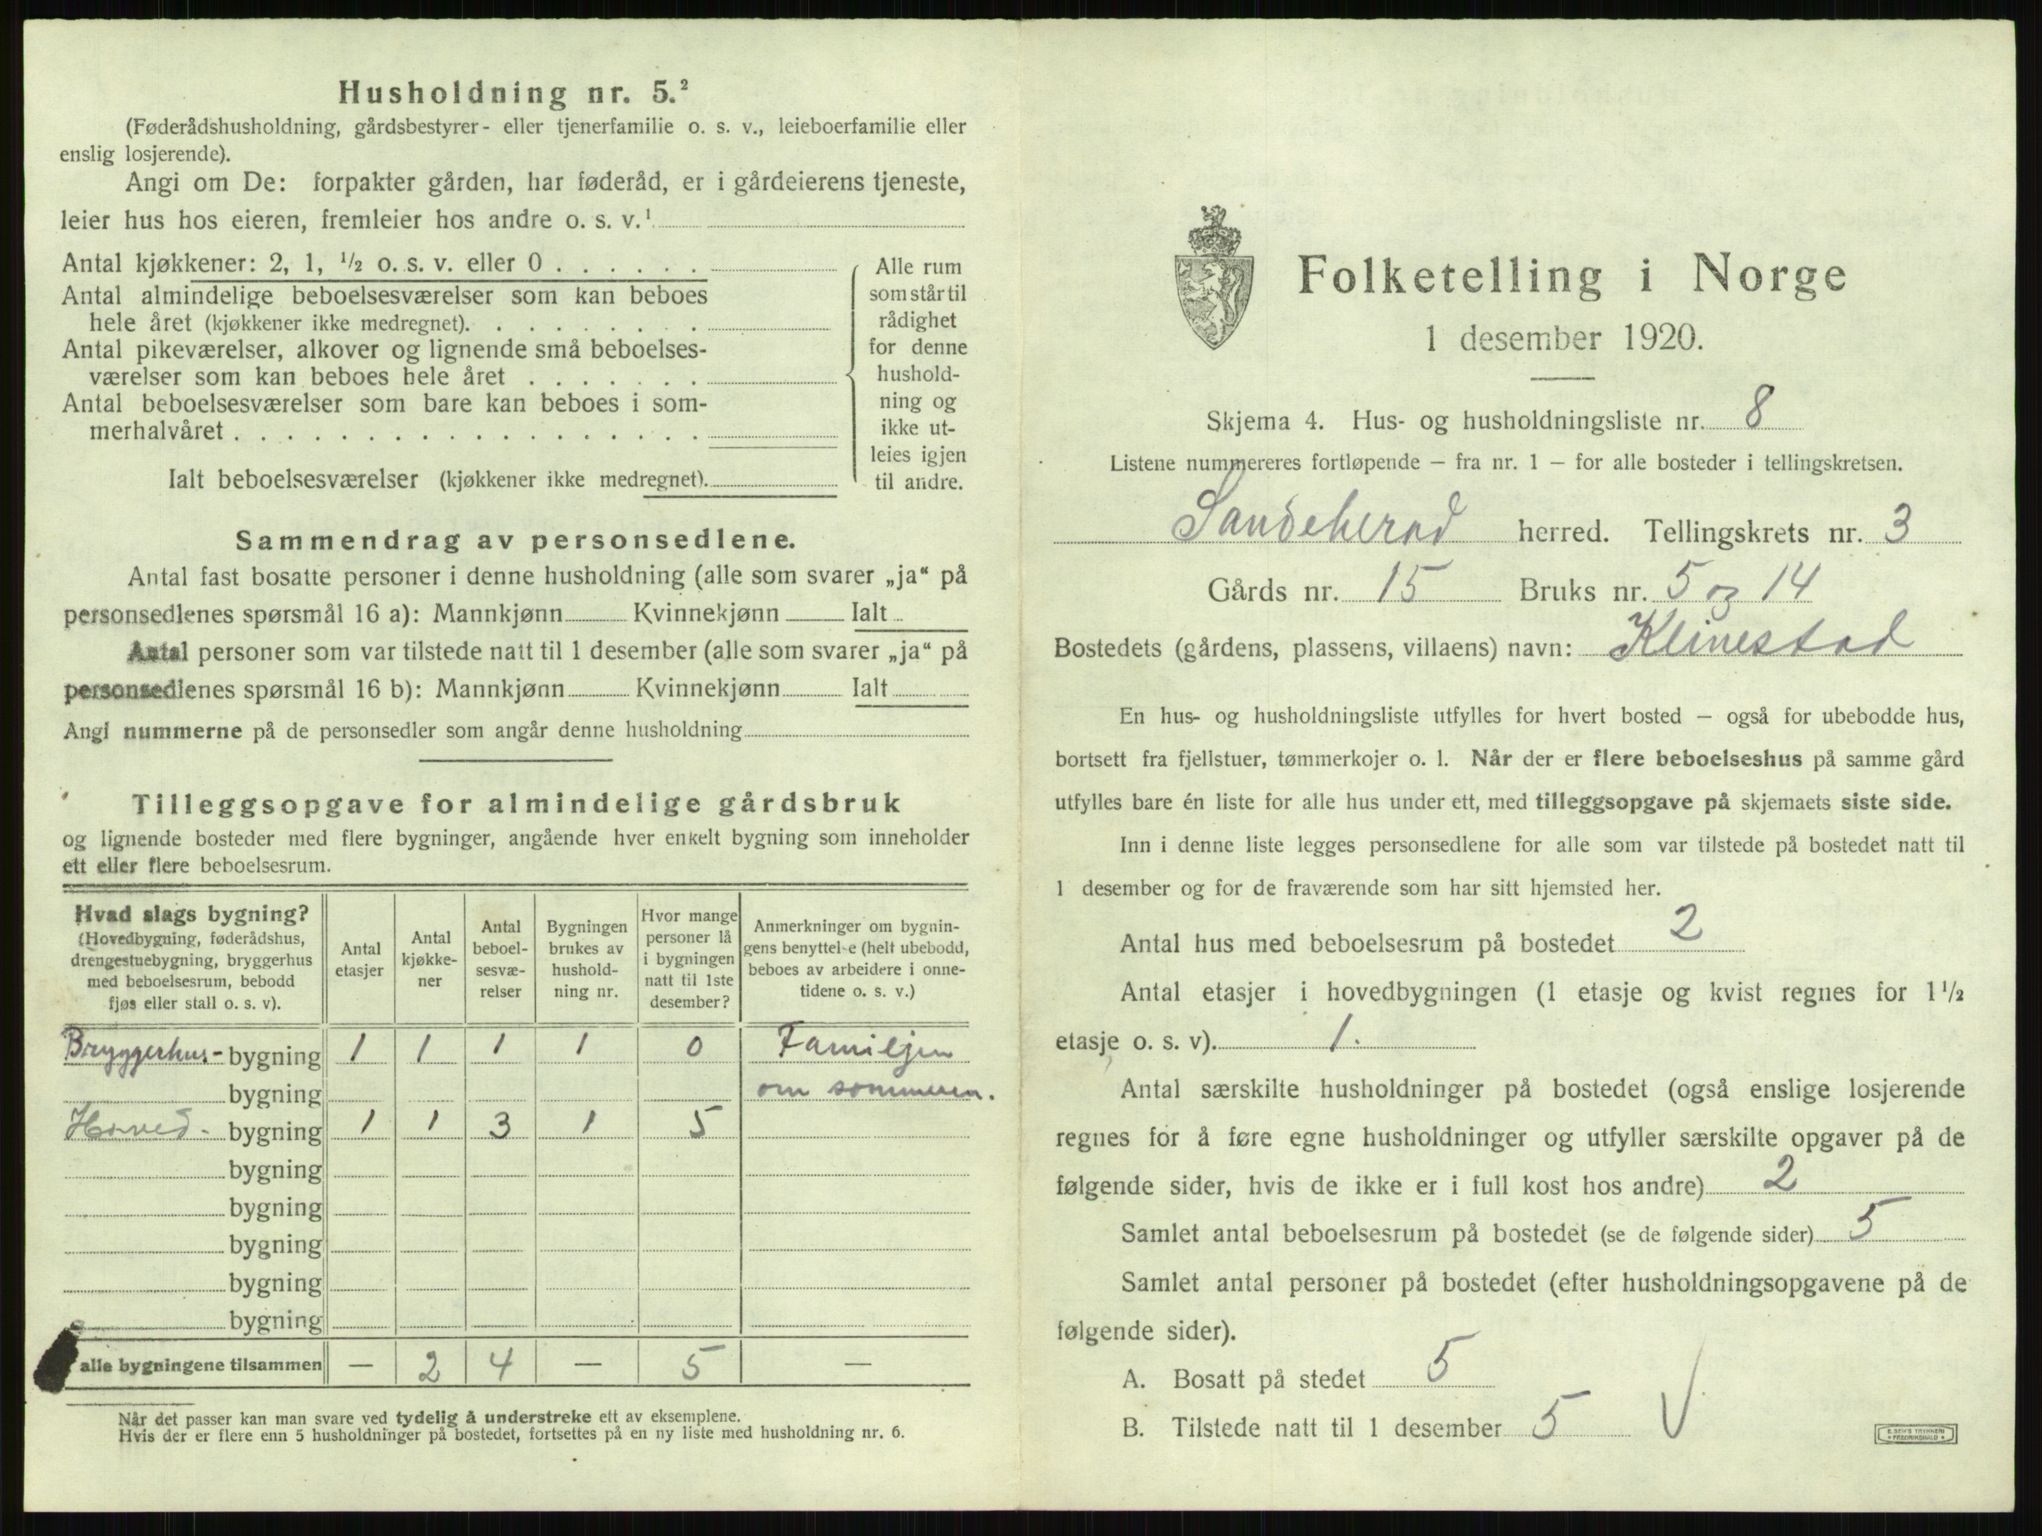 Husholdning nr. 5.²
(Føderådshusholdning, gårdsbestyrer- eller tjenerfamilie o. s. v., leieboerfamilie eller
enslig losjerende).
Angi om De: forpakter gården, har føderåd, er i gårdeierens tjeneste,
leier hus hos eieren, fremleier hos andre o. s. v.¹
Antal kjøkkener: 2, 1, ½ o. s. v. eller 0 . . . . . .
Antal almindelige beboelsesværelser som kan beboes
hele året (kjøkkener ikke medregnet). . . . . . . . .
Antal pikeværelser, alkover og lignende små beboelses-
værelser som kan beboes hele året . . . . . . .
Antal beboelsesværelser som bare kan beboes i som-
merhalvåret . . . . . . . . . . . . . . . . . .
Ialt beboelsesværelser (kjøkkener ikke medregnet).
Alle rum
som står til
rådighet
for denne
hushold-
ning og
ikke ut-
leies igjen
til andre.
Sammendrag av personsedlene.
Antal fast bosatte personer i denne husholdning (alle som svarer „ja“ på
personsedlenes spørsmål 16 a): Mannkjønn Kvinnekjønn Ialt
Antal personer som var tilstede natt til 1 desember (alle som svarer „ja“ på
personsedlenes spørsmål 16 b): Mannkjønn Kvinnekjønn Ialt
Angi nummerne på de personsedler som angår denne husholdning
Tilleggsopgave for almindelige gårdsbruk
og lignende bosteder med flere bygninger, angående hver enkelt bygning som inneholder
ett eller flere beboelsesrum.
Hvad slags bygning?
(Hovedbygning, føderådshus,
drengestuebygning, bryggerhus
med beboelsesrum, bebodd
fjøs eller stall o. s. v).
Antal
etasjer
Antal
kjøkke-
ner
Antal
beboel-
sesvæ-
relser
Bygningen
brukes av
hushold-
ning nr.
Hvor mange
personer lå
i bygningen
natt til 1ste
desember?
Anmerkninger om bygnin-
gens benyttelse (helt ubebodd,
beboes av arbeidere i onne-
tidene o. s. v.)
Bryggerhus- bygning 1 1 1 1 0 Familjen
bygning om sommeren.
Hoved- bygning 1 1 3 1 5
bygning
bygning
bygning
bygning
bygning
alle bygningene tilsammen — 2 4 — 5 —
Når det passer kan man svare ved tydelig å understreke ett av eksemplene.
Hvis der er flere enn 5 husholdninger på bostedet, fortsettes på en ny liste med husholdning nr. 6.
Folketelling i Norge
1 desember 1920.
Skjema 4. Hus- og husholdningsliste nr. 8
Listene nummereres fortløpende – fra nr. 1 – for alle bosteder i tellingskretsen.
Sandeherad herred. Tellingskrets nr. 3
Gårds nr. 15 Bruks nr. 5 og 14
Bostedets (gårdens, plassens, villaens) navn: Klinestad
En hus- og husholdningsliste utfylles for hvert bosted – også for ubebodde hus,
bortsett fra fjellstuer, tømmerkojer o. l. Når der er flere beboelseshus på samme gård
utfylles bare én liste for alle hus under ett, med tilleggsopgave på skjemaets siste side.
Inn i denne liste legges personsedlene for alle som var tilstede på bostedet natt til
1 desember og for de fraværende som har sitt hjemsted her.
Antal hus med beboelsesrum på bostedet 2
Antal etasjer i hovedbygningen (1 etasje og kvist regnes for 1½
etasje o. s. v). 1.
Antal særskilte husholdninger på bostedet (også enslige losjerende
regnes for å føre egne husholdninger og utfyller særskilte opgaver på de
følgende sider, hvis de ikke er i full kost hos andre) 2
Samlet antal beboelsesrum på bostedet (se de følgende sider) 5
Samlet antal personer på bostedet (efter husholdningsopgavene på de
følgende sider).
A. Bosatt på stedet 5
B. Tilstede natt til 1 desember 5 V
E. SEM'S TRYKKERI
FREDRIKSHALD